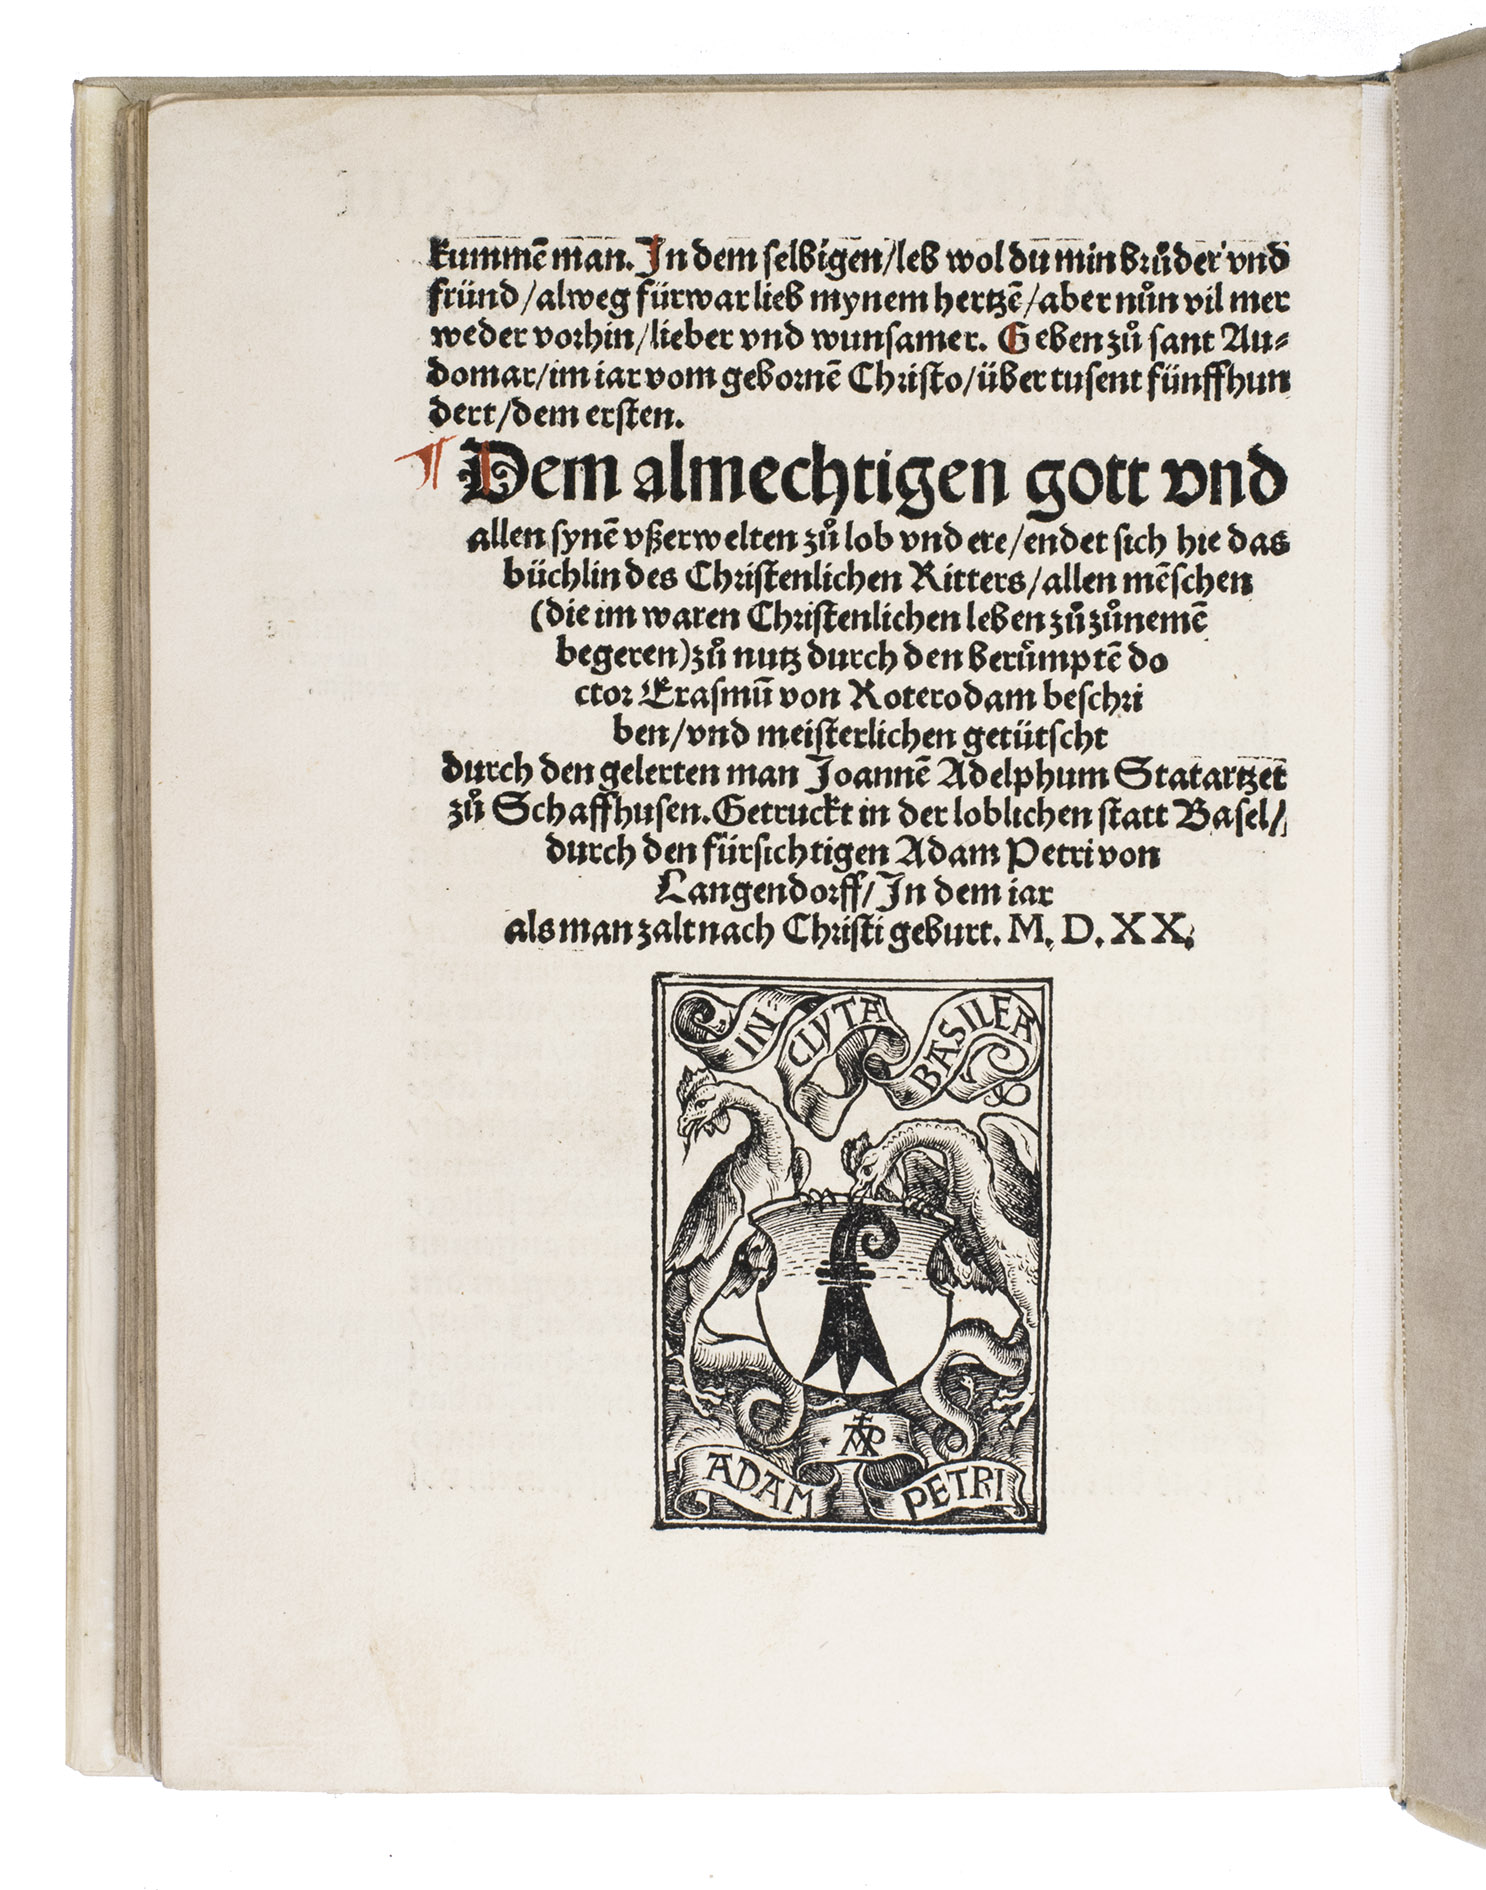 kummē man. In dem selbigen/leb wol du min brůder vnd
fründ/alweg fürwar lieb mynem hertzē/aber nůn vil mer
weder vorhin/lieber vnd wunsamer. Geben zů sant Au⸗
domar/im iar vom gebornē Christo/über tusent fünffhun
dert/dem ersten.
¶ Dem almechtigen gott vnd
allen synē vßerwelten zů lob vnd ere/endet sich hie das
büchlin des Christenlichen Ritters/allen mēschen
(die im waren Christenlichen leben zůzůnemē
begeren)zů nutz durch den berůmptē do
ctor Erasmū von Roterodam beschri
ben/vnd meisterlichen getütscht
durch den gelerten man Joannē Adelphum Statartzet
zů Schaffhusen. Getruckt in der loblichen statt Basel/
durch den fürsichtigen Adam Petri von
Langendorff/In dem iar
als man zalt nach Christi geburt. M. D. XX.
IN-
CLVTA
BASILEA
AP
ADAM
PETRI